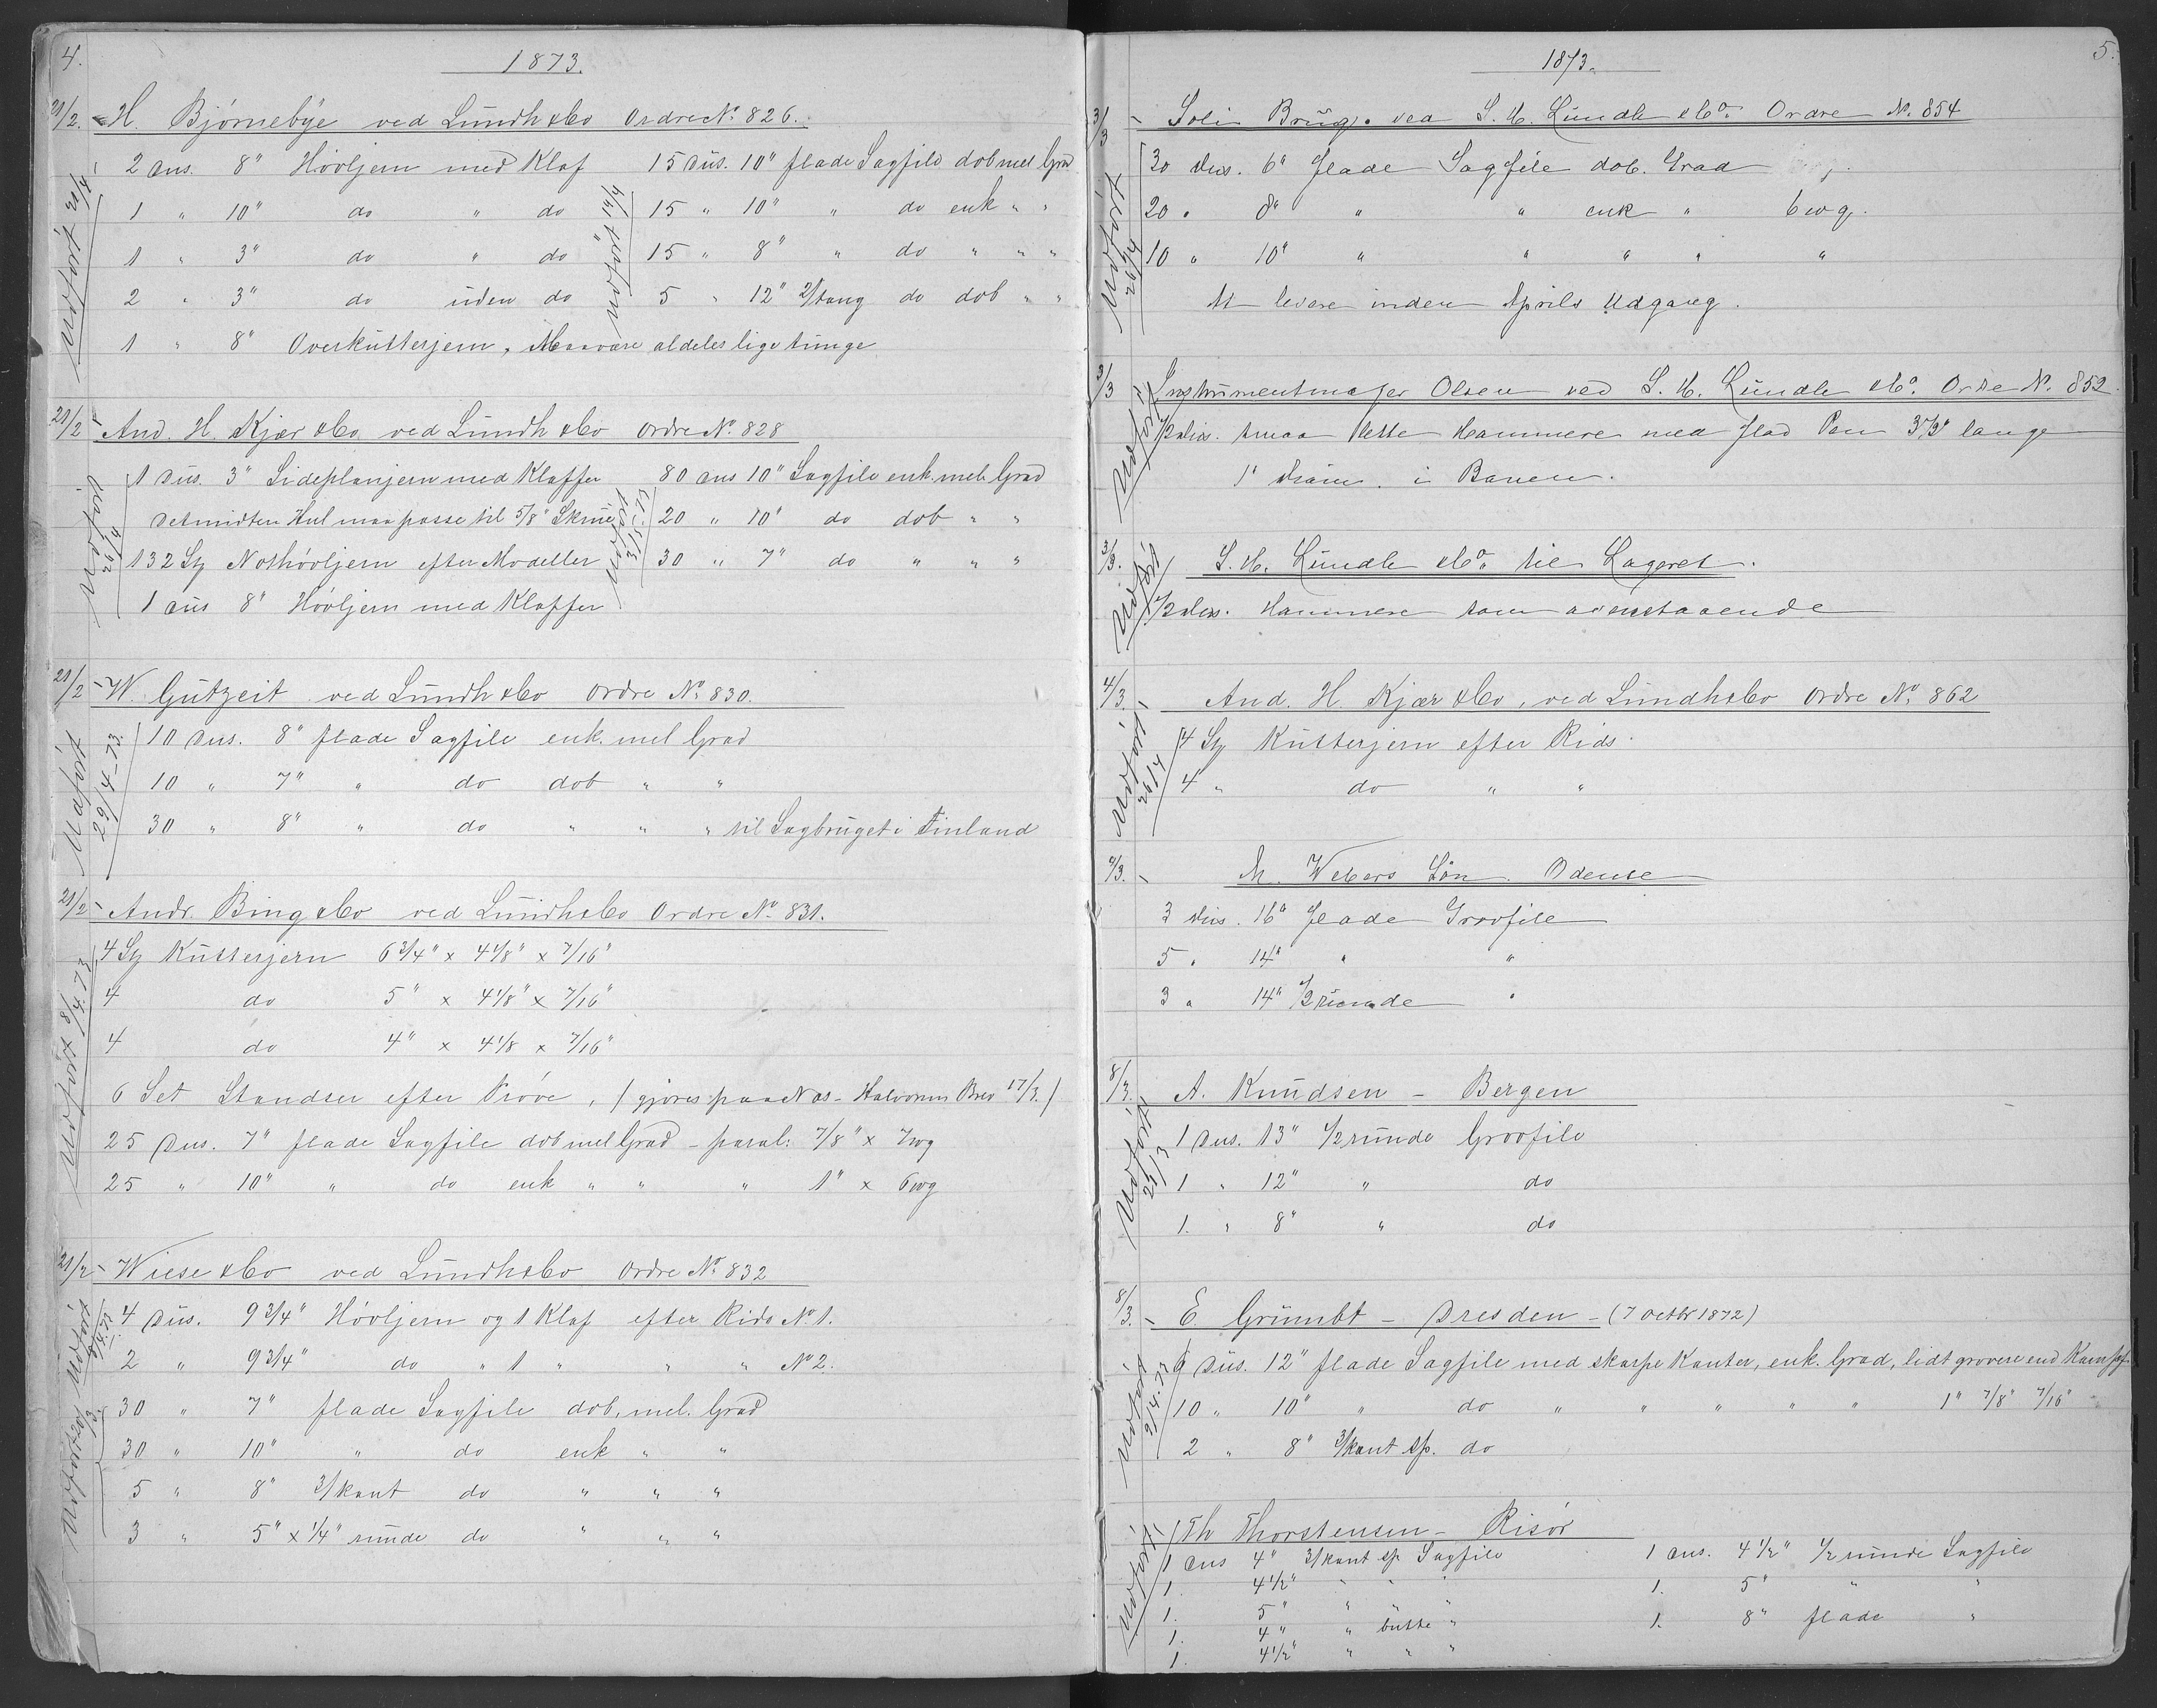 4.
1873.
21/2. H. Bjørnebye ved Lundh & Co Ordre No. 826.
2 Dus. 8" Høvljern med Klaf
1 " 10" do " do
1 " 3" do " do
2 " 3" do uden do
1 " 8" Overkutterjern, Maa være aldeles lige tunge
Udført 20/4
15 Dus. 10" flade Sagfile dob mel Grad
15 " 10" " do enk " "
15 " 8" " do " " "
5 " 12" 2/tang do dob " "
Udført 14/4
21/2 And. H. Kjær & Co ved Lundh & Co Ordre No. 828
1 Dus. 3" Sideplanjern med Klaffer
Det midten Hul maa passe til 5/8" Skrue
132 St Nothøvljern efter Modeller
1 Dus 8" Høvljern med Klaffer
Udført 26/4
80 Dus 10" Sagfile enk. mel. Grad
20 " 10" do dob " "
30 " 7" do " " "
Udført 31/5-73
21/2 W. Gutzeit ved Lundh & Co Ordre No. 830.
10 Dus. 8" flade Sagfile enk. mel Grad
10 " 7" " do dob " "
30 " 8" " do " " " til Sagbruget i Finland
Udført 29/4-73.
21/2 Andr. Bing & Co ved Lundh & Co Ordre No. 831.
4 St Kutterjern 6 3/4" x 4 1/8" x 7/16"
4 do 5" x 4 1/8" x 7/16"
4 do 4" x 4 1/8 x 7/16"
6 Set Standser efter Prøve, (gjøres paa Næs - Halvorsens Brev 17/3.)
25 Dus. 7" flade Sagfile dob mel Grad - paral: 7/8" x 7wg
25 " 10" " do enk " " " 1" x 6wg
Udført 8/4.73
21/2 Wiese & Co ved Lundh & Co Ordre No. 832
4 Dus. 9 3/4" Høvljern og 1 Klaf efter Rids No 1.
2 " 9 3/4" do " 1 " " " No 2.
30 " 7" flade Sagfile dob. mel. Grad
30 " 10" " do enk " "
5 " 8" 3/kant do " " "
3 " 5" x 1/4" runde do " " "
Udført
Udført 20/3
5.
1873.
3/3 Soli Brug. ved S. H. Lundh & Co. Ordre No. 854
30 Dus. 6" flade Sagfile dob. Grad
20 " 8" " " enk " 6wg.
10 " 10" " " " " "
At levere inden Aprils Udgang.
Udført 26/4
3/3 Instrumentmager Olsen ved S. H. Lundh & Co. Ordre No. 852.
1/2 Dus. smaa lette Hammere med flad Pen 3 1/2" lange
1" Diam. i Banen.
Udført
3/3. S. H. Lundh & Co. til Lageret.
1/2 Dus. Hammere som ovenstaaende
Udført
4/3. And. H. Kjær & Co, ved Lundh & Co Ordre No. 862
4 St Kutterjern efter Rids.
4 " do " "
Udført 26/4
4/3. M. Webers Søn. Odense
3 Dus. 16" flade Grovfile
5 " 14" " "
3 " 14" 1/2 runde "
8/3. A. Knudsen - Bergen
1 Dus. 13" 1/2 runde Grovfile
1 " 12" " do
1. " 8" " do
Udført 21/3
8/3. E. Grumbt - Dresden - (7 Octbr 1872)
9 Dus. 12" flade Sagfile med skarpe Kanter, enk. Grad, lidt grovere end
10 " 10" " do " " " " " 1" 7/8" 7/16"
2 " 8" 3/kant sp. do
Udført 2/4.73
Th Thorstensen - Risør
1 Dus 4" 3/kant sp Sagfile
1. 4 1/2" " " "
1. 5" " " "
1. 4" " butte "
1. 4 1/2" " " "
Udført
1 Dus. 4 1/2" 1/2 runde Sagfile
1. 5" " "
1. 8" flade "